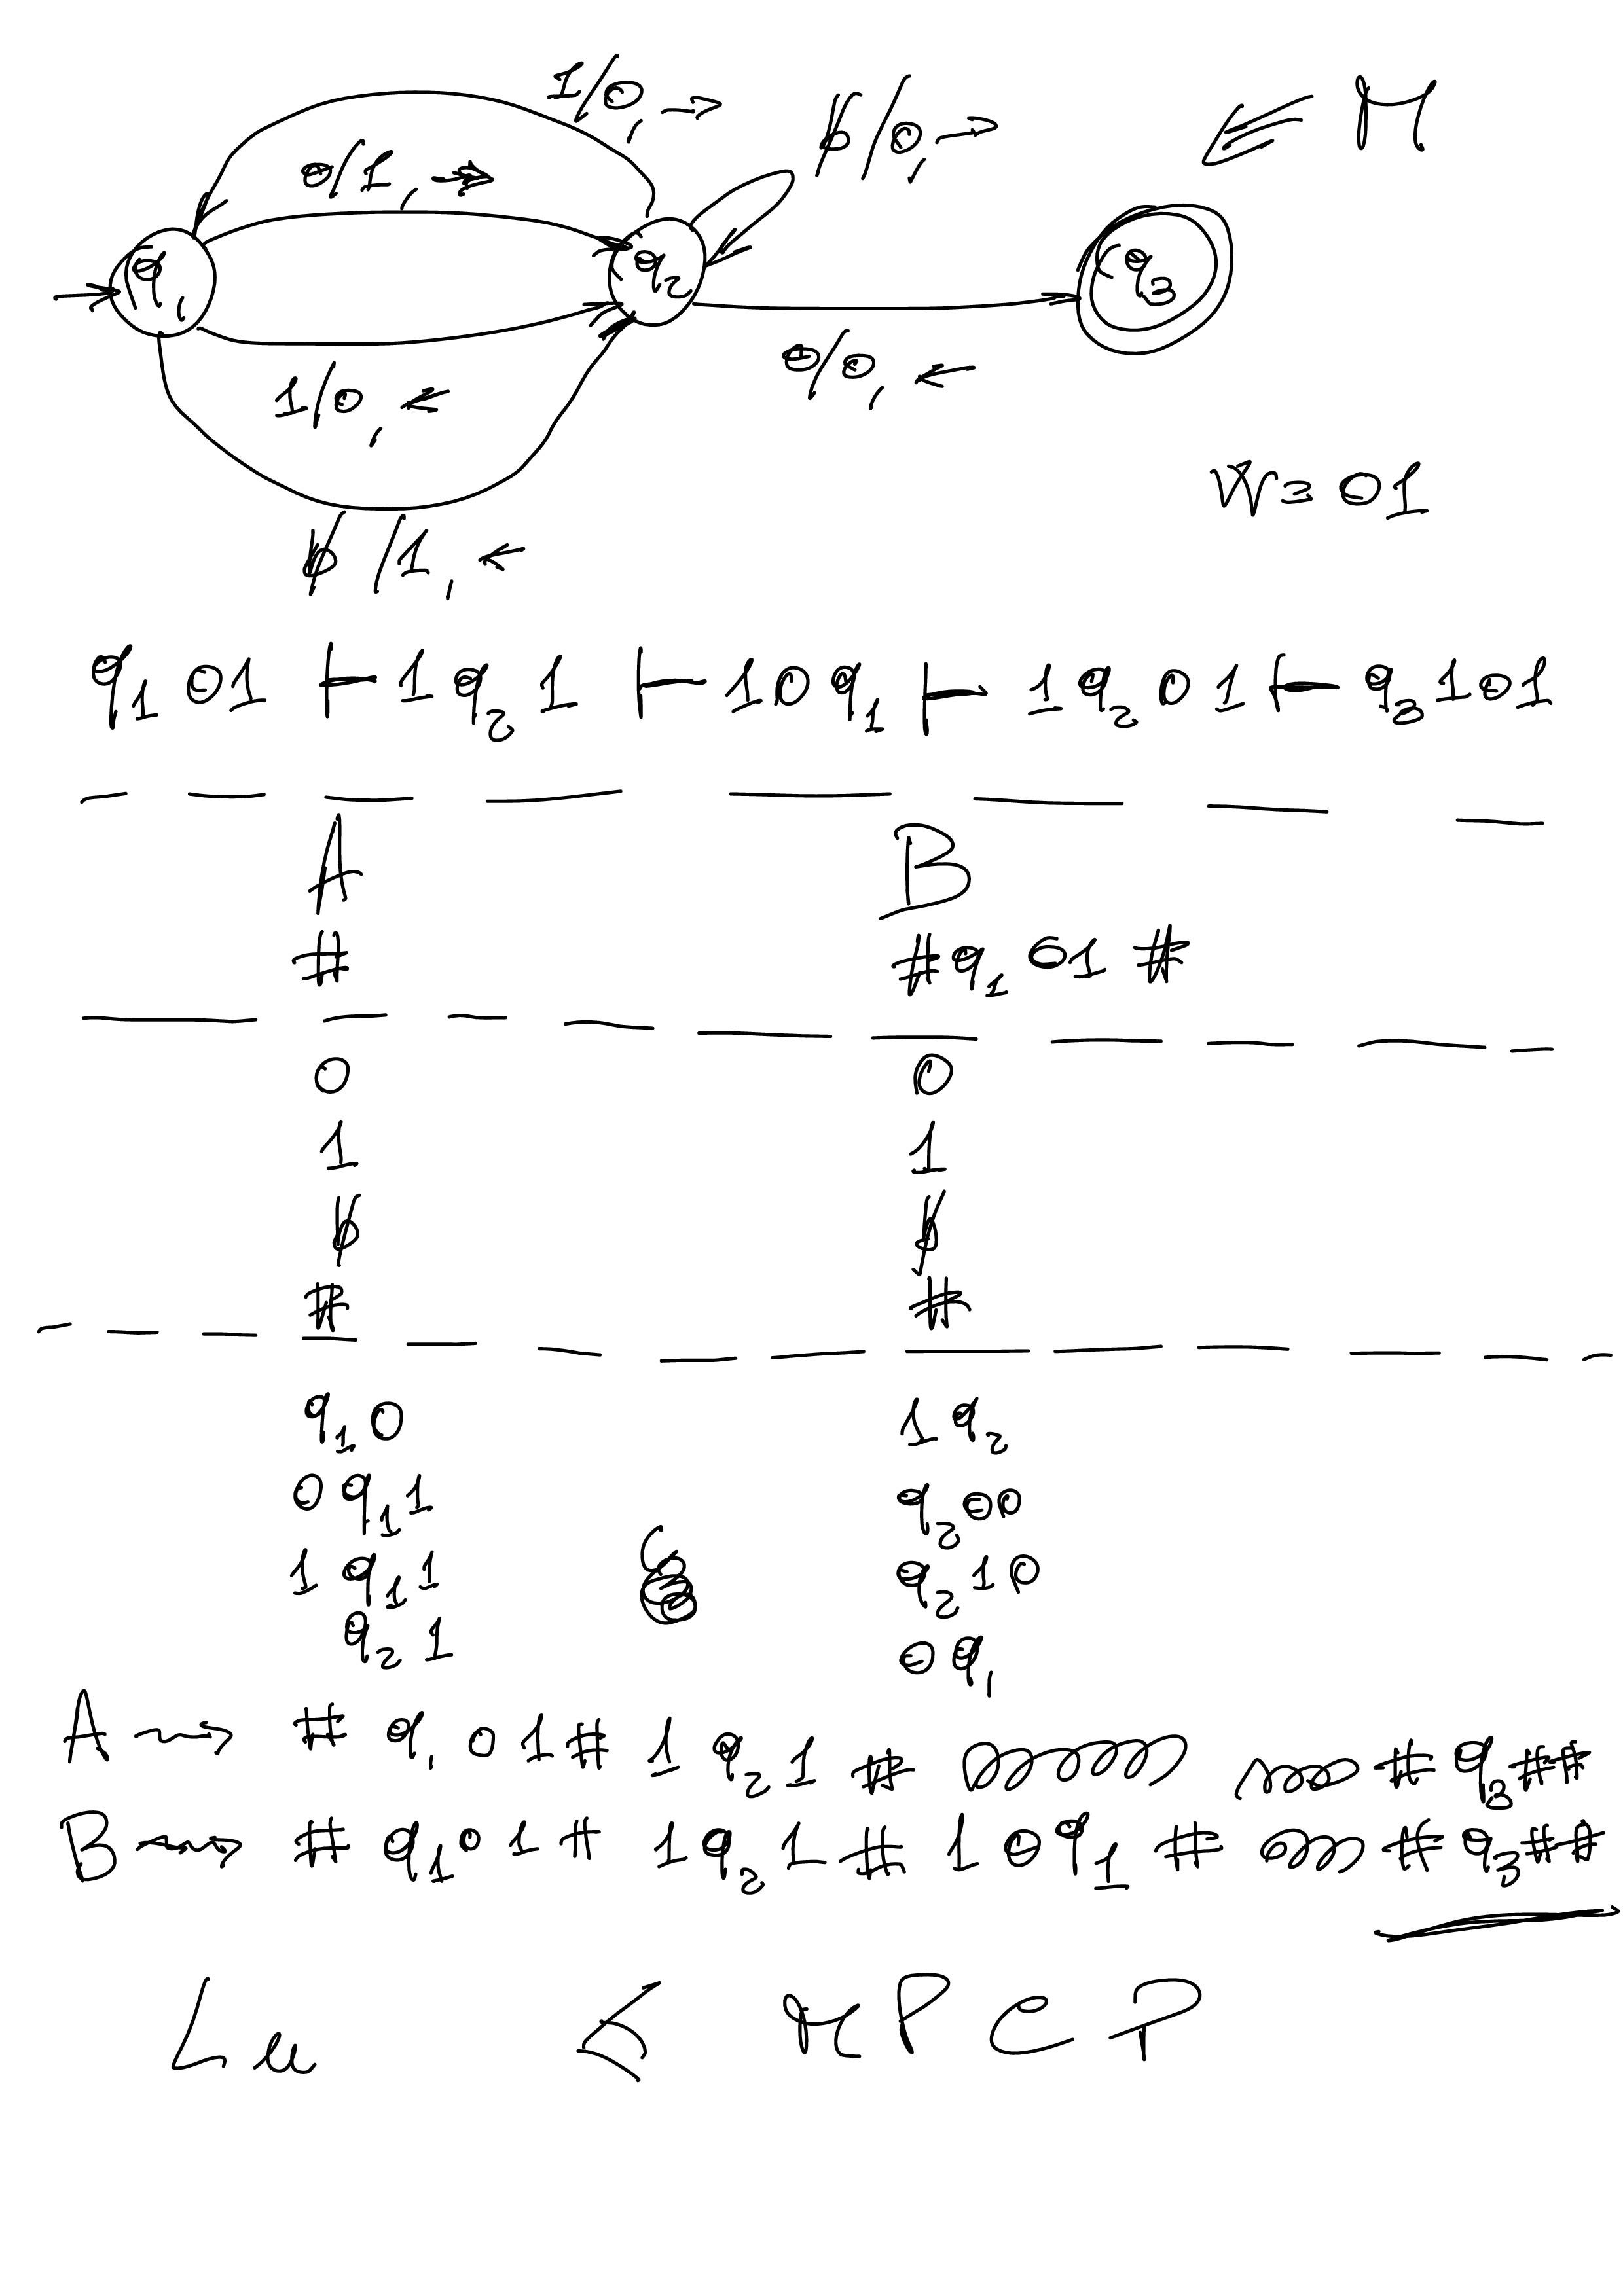 1/0, →
ƀ/0, →
⇐ M
0/1, →
q₁
q₂
q₃
1/0, ←
0/0, ←
W = 01
ƀ/1, ←
q₁01 ⊢ 1q₂1 ⊢ 10q₁ ⊢ 1q₂01 ⊢ q₃101
A B
# #q₁01#
0 0
1 1
ƀ ƀ
# #
q₁0 1q₂
0q₁1 q₂00
1q₁1 q₂10
q₂1 0q₁
A ⇝ #q₁01#1q₂1# #q₃##
B ⇝ #q₁01#1q₂1#10q₁# #q₃##
Lu ≤ MPCP